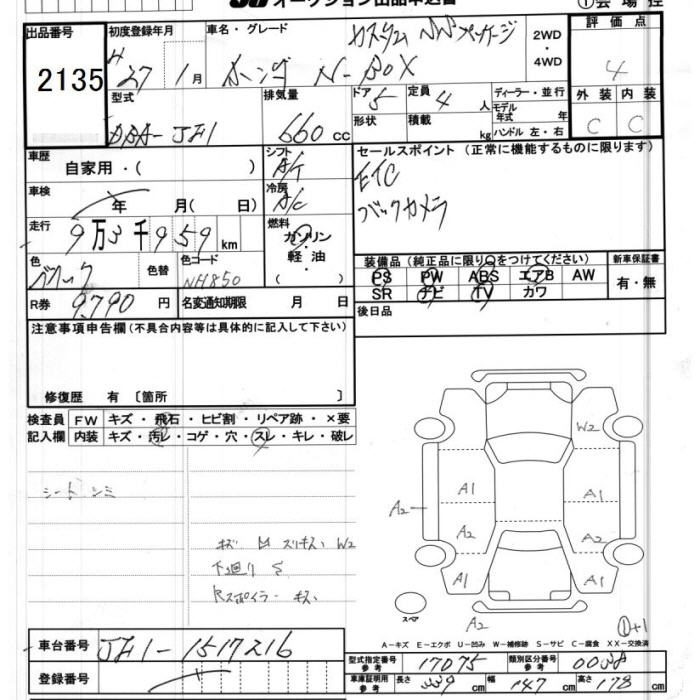 オークション出品申込書
①会場控
出品番号
2135
初度登録年月
27年1月
車名・グレード
カスタム パッケージ
ホンダ N-BOX
2WD
・
4WD
評価点
4
外装 内装
C C
型式
DBA-JF1
排気量
660 cc
ドア 5
形状
定員 4 人
積載 kg
ディーラー・並行
モデル年式 年
ハンドル 左・右
車歴
自家用・( )
シフト
A/T
車検
年 月( 日)
冷房
A/C
走行
9万3千959km
燃料
ガソリン・
軽油・
( )
色
色替
色コード
NH850
R券
9,790 円
名変通知期限 月 日
セールスポイント(正常に機能するものに限ります)
ETC
バックカメラ
装備品(純正品に限り○をつけてください)
PS PW ABS エアB AW
SR ナビ TV カワ
新車保証書
有・無
後日品
注意事項申告欄(不具合内容等は具体的に記入して下さい)
修復歴 有〔箇所 〕
検査員記入欄
FW キズ・飛石・ヒビ割・リペア跡・×要
内装 キズ・汚レ・コゲ・穴・スレ・キレ・破レ
シート シミ
キズ スリキズ W2
下廻り S
Rスポイラー キズ
W2
A1
A1
A2
A2
A2
A1
A1
A2
スペア
①+1
A−キズ E−エクボ U−凹み W−補修跡 S−サビ C−腐食 XX−交換済
車台番号
JF1-1517216
登録番号
型式指定番号 参考
17075
類別区分番号 参考
車庫証明用 参考
長さ 339 cm
幅 147 cm
高さ 178 cm